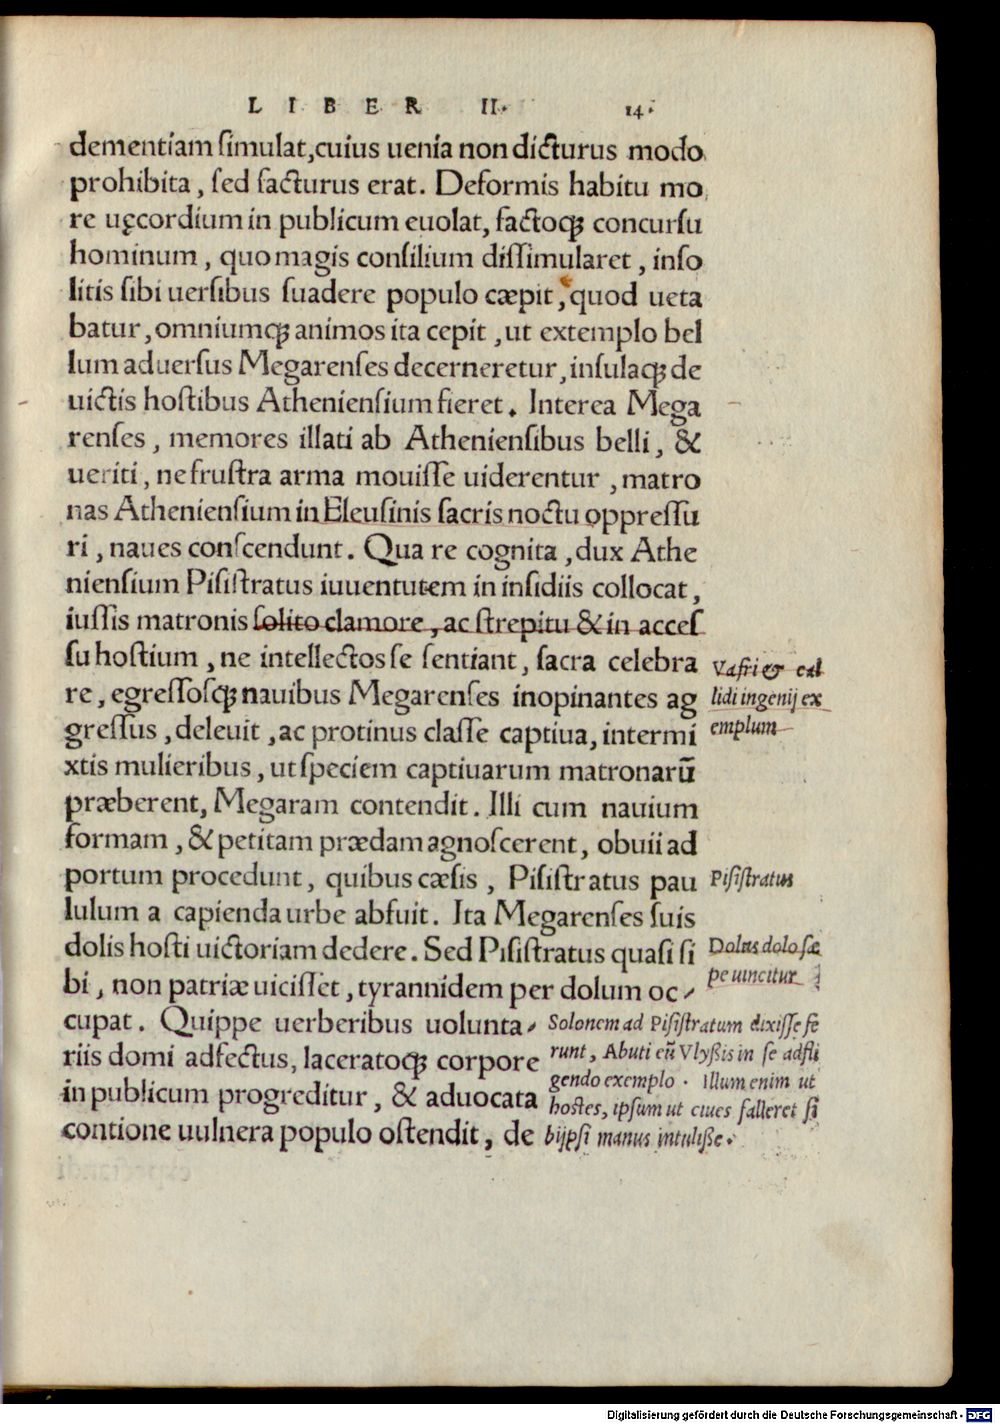 LIBER II. 14.
dementiam ſimulat,cuius uenia non dicturus modo
prohibita, ſed facturus erat. Deformis habitu mo
re uęcordium in publicum euolat, factoq; concurſu
hominum, quo magis conſilium diſſimularet, inſo
litis ſibi uerſibus ſuadere populo cæpit, quod ueta
batur, omniumq; animos ita cepit, ut extemplo bel
lum aduerſus Megarenſes decerneretur, inſulaq; de
uictis hoſtibus Athenienſium fieret. Interea Mega
renſes, memores illati ab Athenienſibus belli, &
ueriti, ne fruſtra arma mouiſſe uiderentur, matro
nas Athenienſium in Eleuſinis ſacris noctu oppreſſu
ri, naues conſcendunt. Qua re cognita, dux Athe
nienſium Piſiſtratus iuuentutem in inſidiis collocat,
iuſſis matronis ſolito clamore, ac ſtrepitu & in acceſ
ſu hoſtium, ne intellectos ſe ſentiant, ſacra celebra
re, egreſſoſq; nauibus Megarenſes inopinantes ag
greſſus, deleuit, ac protinus claſſe captiua, intermi
xtis mulieribus, ut ſpeciem captiuarum matronarū
præberent, Megaram contendit. Illi cum nauium
formam, & petitam prædam agnoſcerent, obuii ad
portum procedunt, quibus cæſis, Piſiſtratus pau
lulum a capienda urbe abfuit. Ita Megarenſes ſuis
dolis hoſti uictoriam dedere. Sed Piſiſtratus quaſi ſi
bi, non patriæ uiciſſet, tyrannidem per dolum oc-
cupat. Quippe uerberibus uolunta-
riis domi adfectus, laceratoq; corpore
in publicum progreditur, & aduocata
contione uulnera populo oſtendit, de
Vafri & cal
lidi ingenij ex
emplum
Piſiſtratus
Dolus dolo ſæ
pe uincitur
Solonem ad Piſiſtratum dixiſſe fe
runt, Abuti eū Vlyßis in ſe adfli
gendo exemplo. Illum enim ut
hoſtes, ipſum ut ciues falleret ſi
bijpſi manus intuliße.
Digitalisierung gefördert durch die Deutsche Forschungsgemeinschaft - DFG